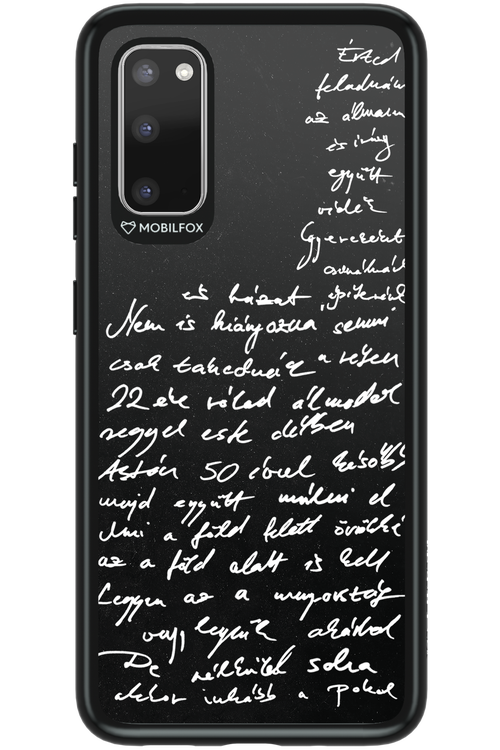 Érted
feladnám
az álmaim
és irány
együtt
vidék
Gyerekeket
csinálnánk
és házat építenénk
Nem is hiányozna semmi
csak takednék a retyen
22 éve rólad álmodok
reggel este délben
Aztán 50 évvel később
majd együtt múlni el
Ami a föld felett örökké
az a föld alatt is kell
Legyen az a menyország
vagy legyünk akárhol
De nélküled soha
akkor inkább a Pokol
MOBILFOX